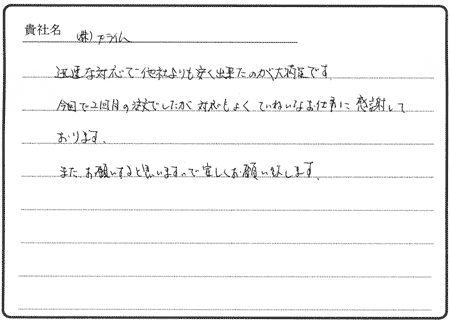 貴社名 (株)プライム
迅速な対応で他社よりも安く出来たのが大満足です。
今回で2回目の注文でしたが対応もよくていねいなお仕事に感謝して
おります。
また、お願いすると思いますので宜しくお願い致します。